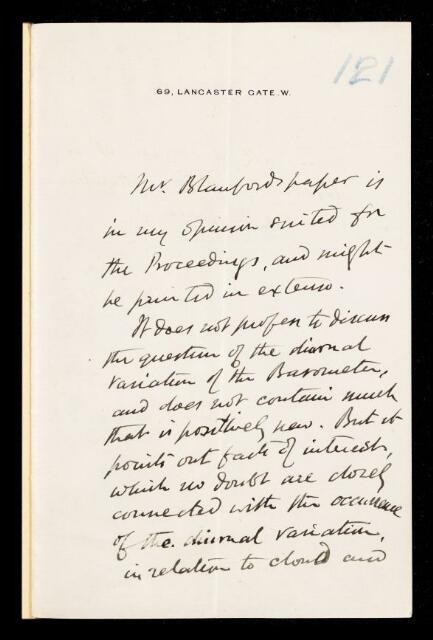 121
69, LANCASTER GATE. W.
Mr. Blanford's paper is
in my opinion suited for
the Proceedings, and might
be printed in extenso.
It does not profess to discuss
the question of the diurnal
variation of the Barometer,
and does not contain much
that is positively new. But it
points out facts of interest,
which no doubt are closely
connected with the occurrence
of the diurnal variation,
in relation to cloud and